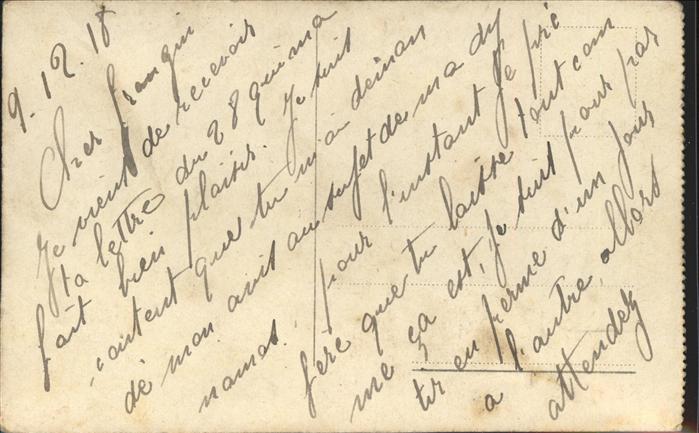 9.12.18
Cher frangin
Je vient de recevoir
ta lettre du 28 qui ma
fait bien plaisir. Je suit
content que tu m'ai deman
dé mon avis au sujet de ma dy
namos. pour l'instant je pré
fere que tu laisse tout com
me ça est, je suit pour par
tir en perme d'un jour
a l'autre allors
attendez